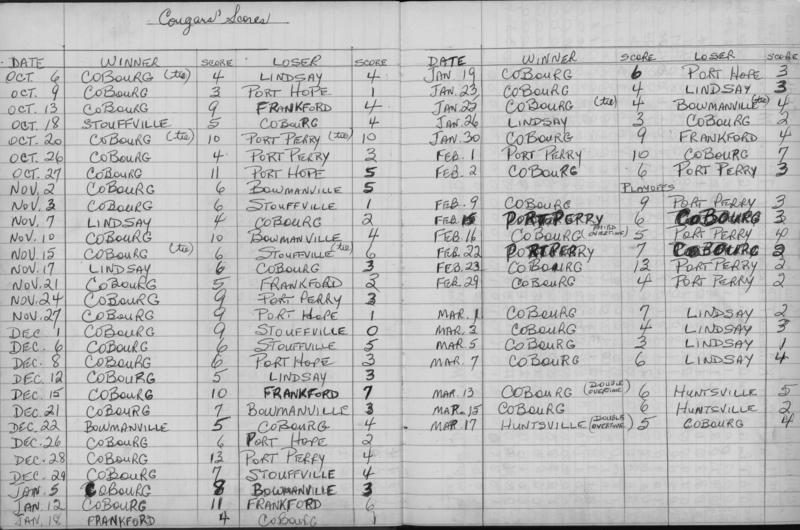 Cougars' Scores
DATE WINNER SCORE LOSER SCORE
OCT. 6 COBOURG (tie) 4 LINDSAY 4
OCT. 9 COBOURG 3 PORT HOPE 1
OCT. 13 COBOURG 9 FRANKFORD 4
OCT. 18 STOUFFVILLE 5 COBOURG 4
OCT. 20 COBOURG (tie) 10 PORT PERRY (tie) 10
OCT. 26 COBOURG 4 PORT PERRY 3
OCT. 27 COBOURG 11 PORT HOPE 5
NOV. 2 COBOURG 6 BOWMANVILLE 5
NOV. 3 COBOURG 6 STOUFFVILLE 1
NOV. 7 LINDSAY 4 COBOURG 2
NOV. 10 COBOURG 10 BOWMANVILLE 4
NOV. 15 COBOURG (tie) 6 STOUFFVILLE (tie) 6
NOV. 17 LINDSAY 6 COBOURG 3
NOV. 21 COBOURG 5 FRANKFORD 2
NOV. 24 COBOURG 9 PORT PERRY 3
NOV. 27 COBOURG 9 PORT HOPE 1
DEC. 1 COBOURG 9 STOUFFVILLE 0
DEC. 6 COBOURG 6 STOUFFVILLE 5
DEC. 8 COBOURG 6 PORT HOPE 3
DEC. 12 COBOURG 5 LINDSAY 3
DEC. 15 COBOURG 10 FRANKFORD 7
DEC. 21 COBOURG 7 BOWMANVILLE 3
DEC. 22 BOWMANVILLE 5 COBOURG 4
DEC. 26 COBOURG 6 PORT HOPE 2
DEC. 28 COBOURG 13 PORT PERRY 4
DEC. 29 COBOURG 7 STOUFFVILLE 4
JAN. 5 COBOURG 8 BOWMANVILLE 3
JAN. 12 COBOURG 11 FRANKFORD 6
JAN. 18 FRANKFORD 4 COBOURG 1
DATE WINNER SCORE LOSER SCORE
JAN. 19 COBOURG 6 PORT HOPE 3
JAN. 23 COBOURG 4 LINDSAY 3
JAN. 25 COBOURG (tie) 4 BOWMANVILLE (tie) 4
JAN. 26 LINDSAY 3 COBOURG 2
JAN. 30 COBOURG 9 FRANKFORD 4
FEB. 1 PORT PERRY 10 COBOURG 7
FEB. 2 COBOURG 6 PORT PERRY 3
PLAYOFFS
FEB. 9 COBOURG 9 PORT PERRY 3
FEB. 15 PORT PERRY 6 COBOURG 3
FEB. 16 COBOURG (THIRD OVERTIME) 5 PORT PERRY 4
FEB. 22 PORT PERRY 7 COBOURG 2
FEB. 23 COBOURG 12 PORT PERRY 2
FEB. 29 COBOURG 4 PORT PERRY 2
MAR. 1 COBOURG 7 LINDSAY 2
MAR. 3 COBOURG 4 LINDSAY 3
MAR. 5 COBOURG 3 LINDSAY 1
MAR. 7 COBOURG 6 LINDSAY 4
MAR. 13 COBOURG (DOUBLE OVERTIME) 6 HUNTSVILLE 5
MAR. 15 COBOURG 6 HUNTSVILLE 2
MAR. 17 HUNTSVILLE (DOUBLE OVERTIME) 5 COBOURG 4